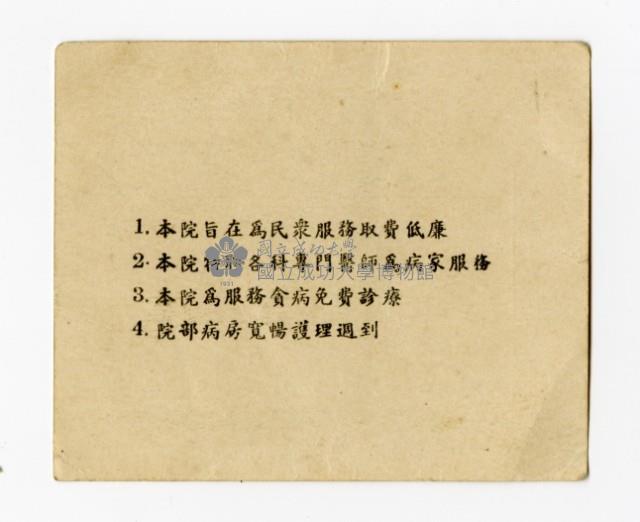 1. 本院旨在爲民衆服務取費低廉
2. 本院特聘各科專門醫師爲病家服務
3. 本院爲服務貧病免費診療
4. 院部病房寬暢護理週到
國立成功大學
國立成功大學博物館
1931